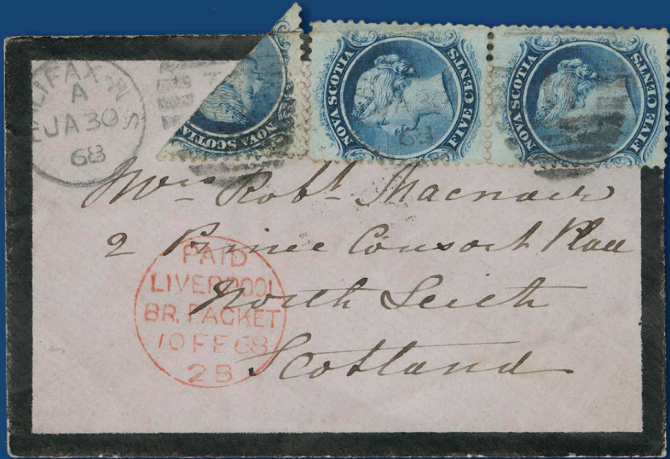 HALIFAX N.S
A
JA 30
68
NOVA SCOTIA
NOVA SCOTIA
FIVE CENTS
NOVA SCOTIA
FIVE CENTS
Mrs Robt. Macnair
2 Prince Consort Place
North Leith
Scotland
PAID
LIVERPOOL
BR. PACKET
10 FE 68
2B